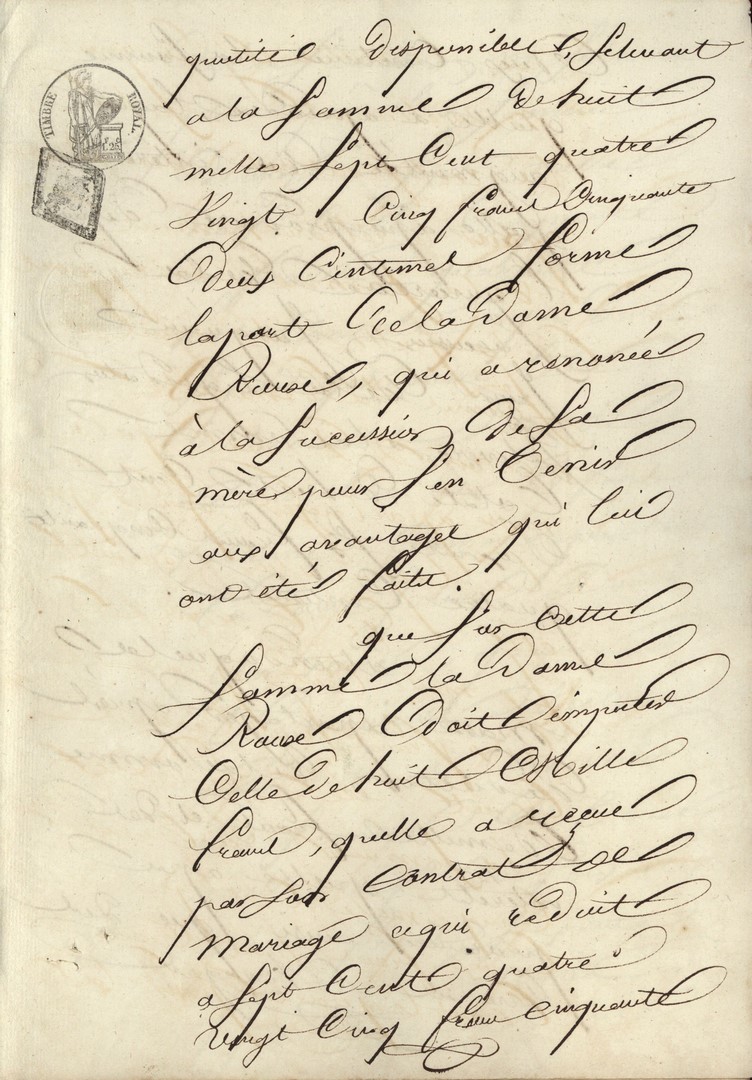 TIMBRE ROYAL
quotité disponible, s'élevant
a la somme De huit
mille sept Cent quatre
Vingt Cinq francs Cinquante
Deux Centimes forme
la part de la Dame
Rouse, qui a renoncée
à la succession De sa
mère pour s'en tenir
aux avantages qui lui
ont été faits.
que sur cette
somme la Dame
Rouse Doit imputer
Celle De huit Mille
francs, quelle a reçue
par son Contrat De
Mariage cequi reduit
a sept Cent quatre
vingt Cinq francs Cinquante